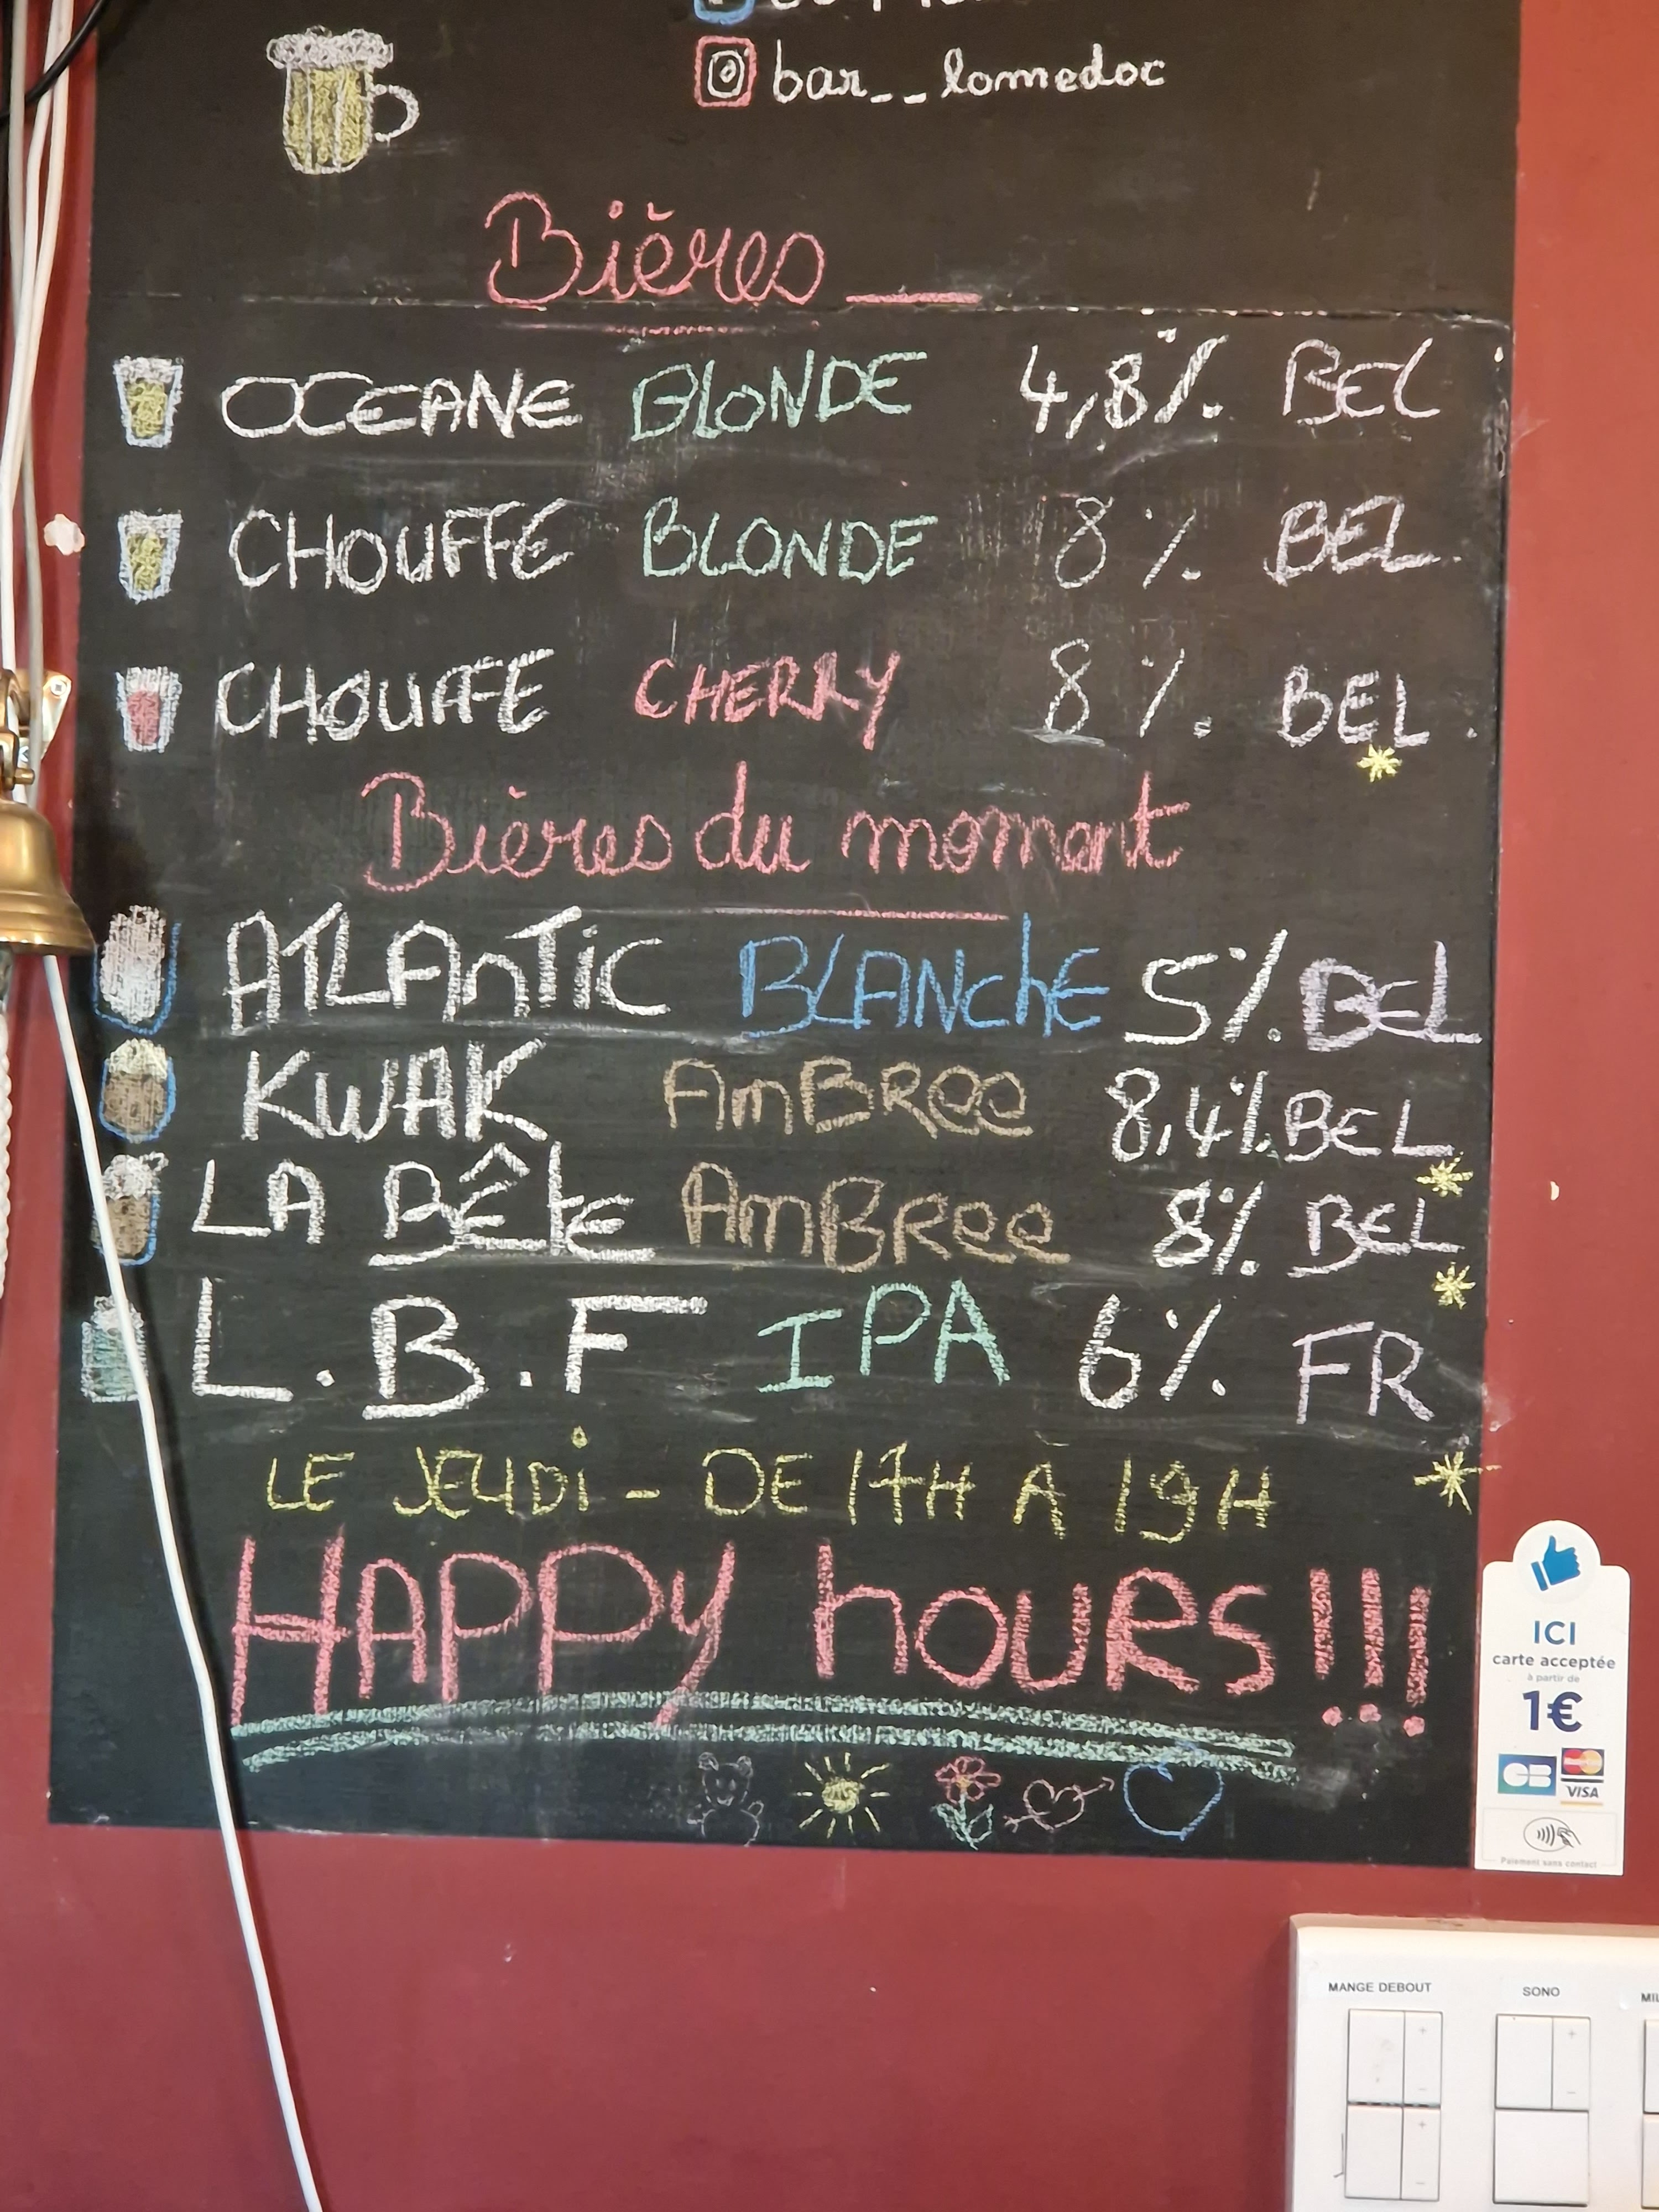 bar__lomedoc
Bières
OCEANE BLONDE 4,8% BEL
CHOUFFE BLONDE 8% BEL
CHOUFFE CHERRY 8% BEL
Bières du moment
ATLAnTic BLANchE 5% BEL
KWAK AmBRee 8,4% BEL
LA BÊte AmBRee 8% BEL
L.B.F IPA 6% FR
LE JEUDi - DE 17H À 19H
HAPPy hOURS!!!
ICI
carte acceptée
à partir de
1€
CB
MasterCard
VISA
Paiement sans contact
MANGE DEBOUT
SONO